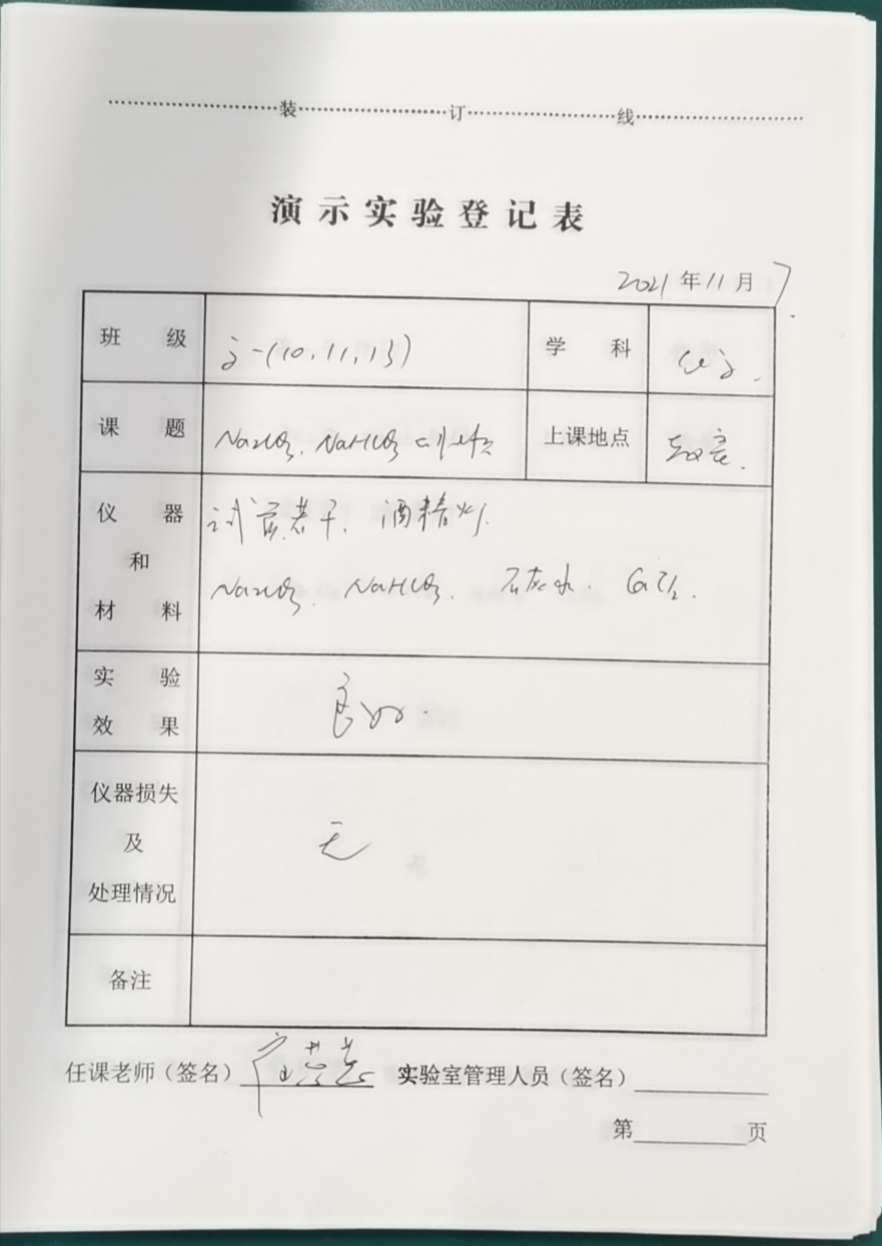 装 订 线
演示实验登记表
2021年11月7
班 级 高一(10,11,13) 学 科 化学.
课 题 Na2CO3、NaHCO3的性质 上课地点 教室.
仪 器 试管若干、酒精灯.
和
材 料 Na2CO3、NaHCO3. 石灰水. CaCl2.
实 验
效 果 良好.
仪器损失
及 无
处理情况
备注
任课老师(签名) 实验室管理人员(签名)
第 页